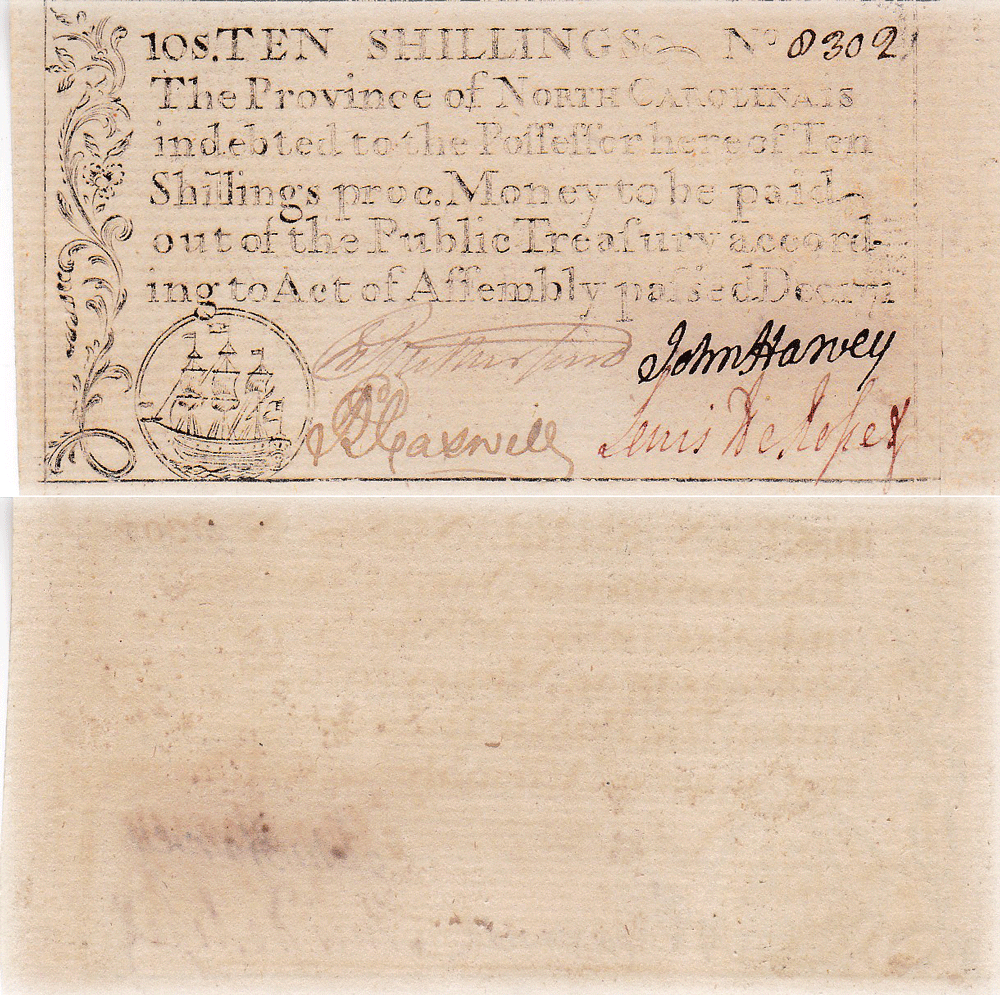 10s. TEN SHILLINGS Nº 8302
The Province of NORTH CAROLINA is
indebted to the Poſſeſſor here of Ten
Shillings proc. Money to be paid
out of the Public Treaſury accord-
ing to Act of Aſſembly paſsed Decr 1771
John Harvey
Rd Caswell
Lewis De